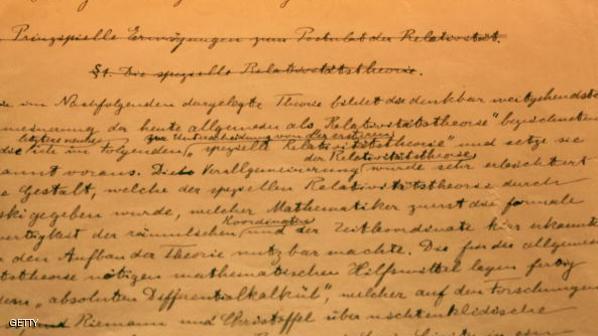 Prinzipielle Erwägungen zum Postulat der Relativität.
§1. Die spezielle Relativitätstheorie.
im Nachfolgenden dargelegte Theorie bildet die denkbar weitgehendste
der heute allgemein als "Relativitätstheorie" bezeichneten
letztere nenne zur Unterscheidung von der ersteren
die ich im folgenden "spezielle Relativitätstheorie" und setze sie
der Relativitätstheorie
voraus. Die Verallgemeinerung wurde sehr erleichtert
Gestalt, welche der speziellen Relativitätstheorie durch
gegeben wurde, welcher Mathematiker zuerst die formale
Koordinaten
der räumlichen und der Zeitkoordinate klar erkannte
den Aufbau der Theorie nutzbar machte. Die für die allgemeine
nötigen mathematischen Hilfsmittel lagen fertig
"absoluten Differentialkalkül", welcher auf den Forschungen
Riemann und Christoffel über nichteuklidische
GETTY